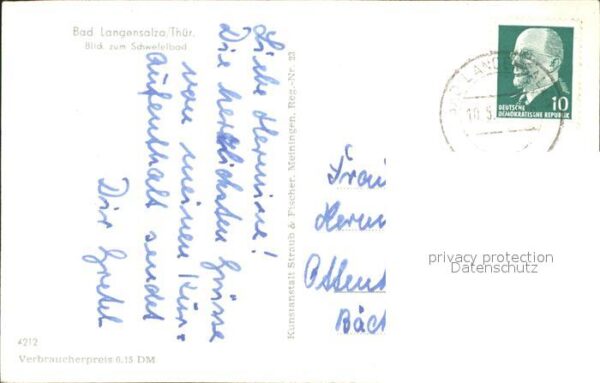 Bad Langensalza/Thür.
Blick zum Schwefelbad
Liebe Hermine!
Die herzlichsten Grüsse
von meinen Kur-
aufenthalt sendet
Dir Gretel
Kunstanstalt Straub & Fischer, Meiningen, Reg.-Nr. 23
DEUTSCHE
DEMOKRATISCHE REPUBLIK
10
BAD LANGENSALZA
10.5.
Frau
Herm
Ottend
Bäc
privacy protection
Datenschutz
4212
Verbraucherpreis 0,15 DM